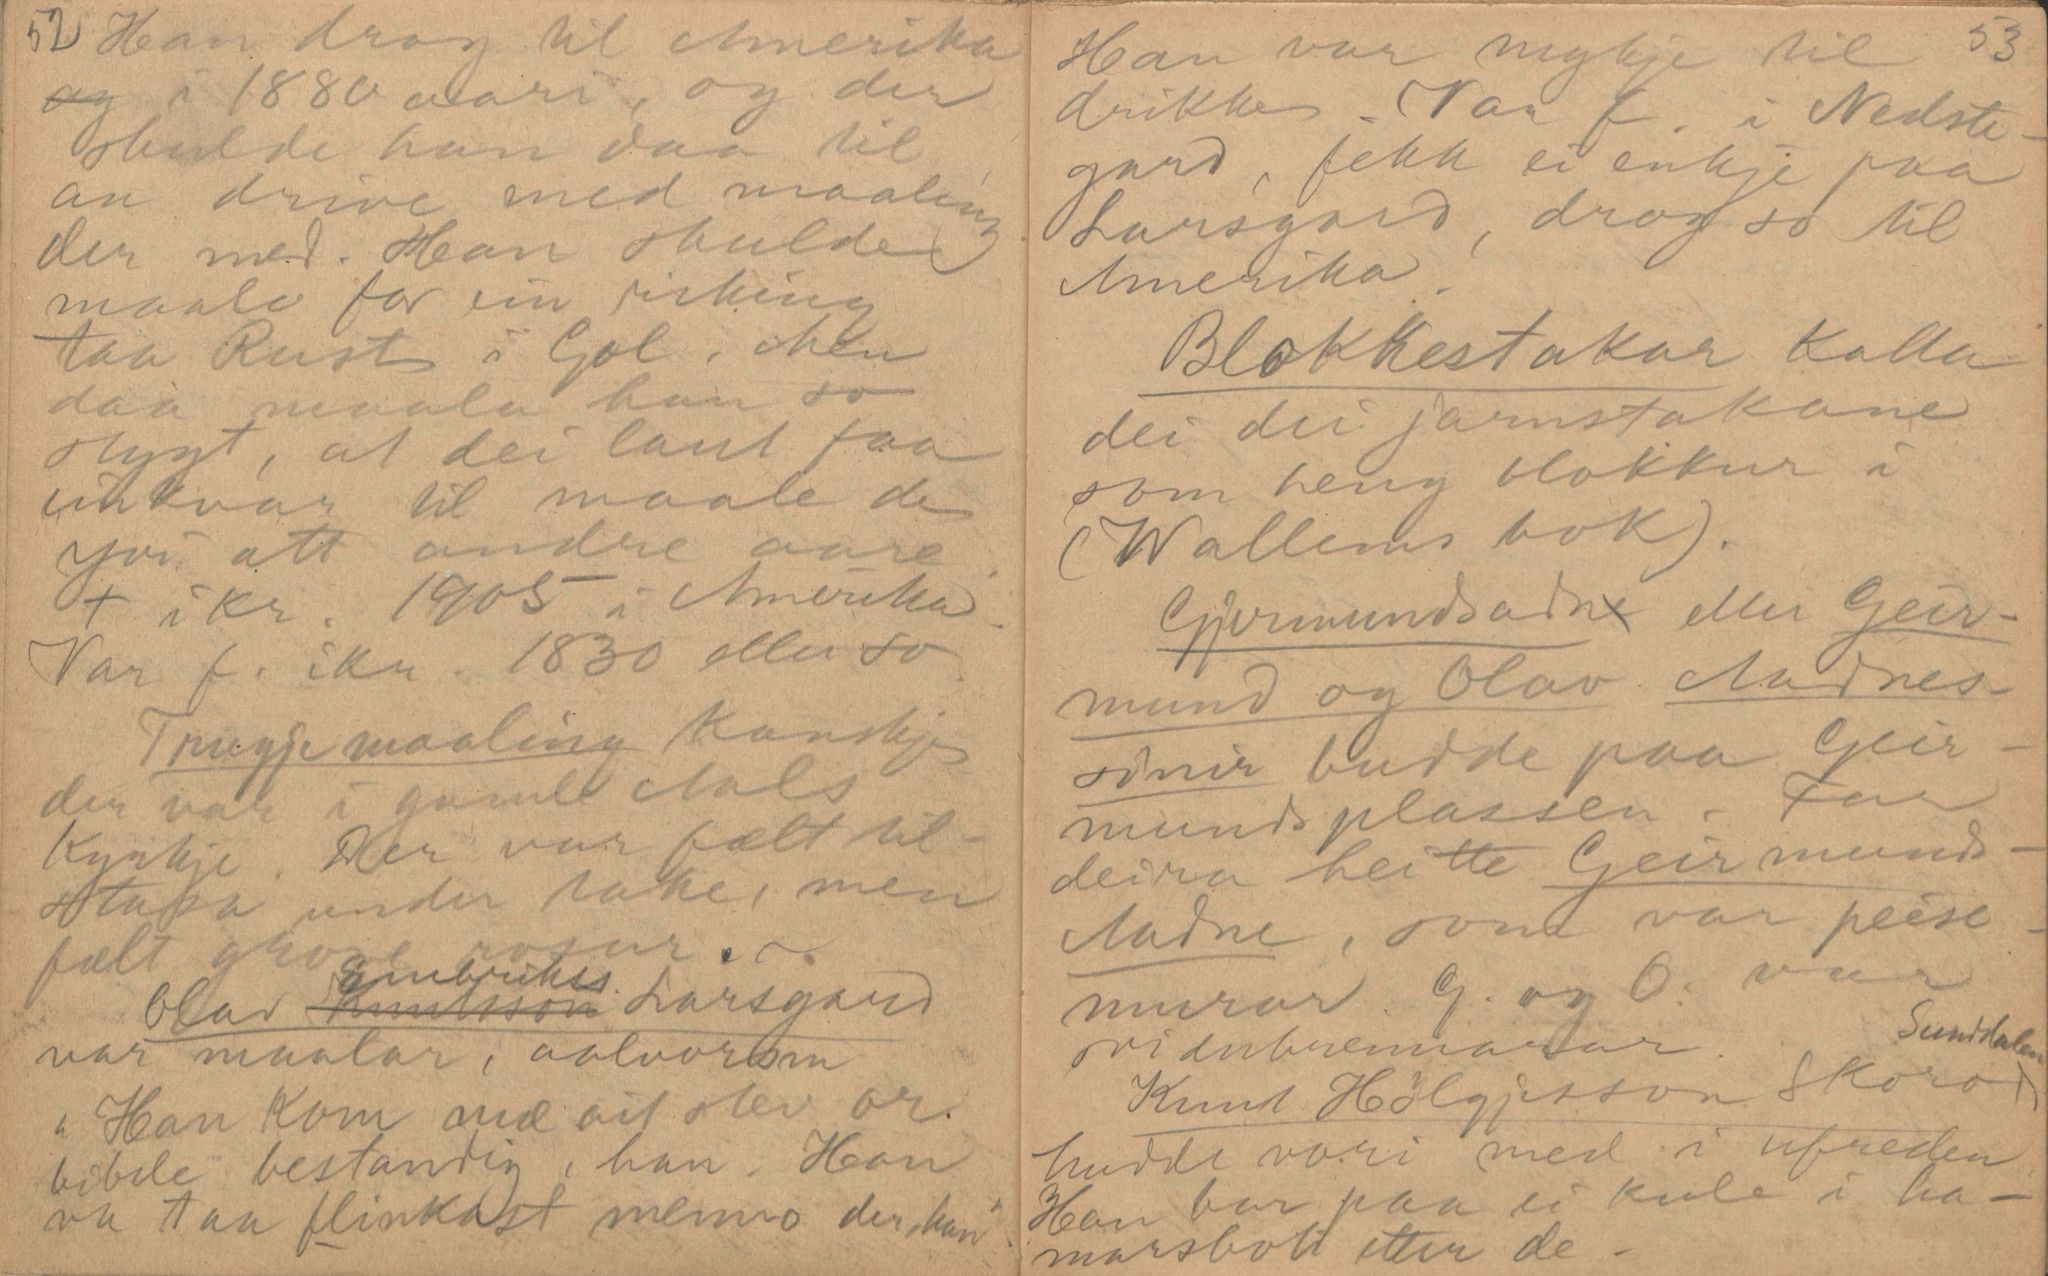 52 Han drog til Amerika
og i 1880 aari, og der
skulde han daa til
an drive med maaling
der med. Han skulde
maale for ein
taa Rust i Gol. Men
daa maala han so
stygt, at dei laut faa
einkvar til maale de
yvi att andre aare.
+ ikr. 1905 i Amerika.
Var f. ikr. 1830 eller so
Trugjemaaling kanskje
der var i gamle Aals
Kyrkje. Der var fælt til-
stasa under take, men
fælt grove rosur. ~
Olav Knutsson Embrikss. Larsgard
var maalar, aalvorsm
"Han kom mæ eit stev or
bibele bestandig, han. Han
va taa flinkast menno der, han"
53
Han var mykje til
drikke. Var f. i Nedste-
gard, fekk ei enkje paa
Larsgard, drog so til
Amerika.
Blokkestakar kalla
dei dei jarnstakane
som heng blokkur i
(Wallems bok).
Gjermundsadne eller Geir-
mund og Olav Aadnes-
sønir budde paa Geir-
mundsplassen. Far
deira heitte Geirmunds-
Aadne, som var peise-
murar. G. og O. var
svidubrennarar.
Sunddalen
Knut Hölgjesson Skoro
hadde vori med i ufreden
Han bar paa ei kule i ha-
marsbott etter de.